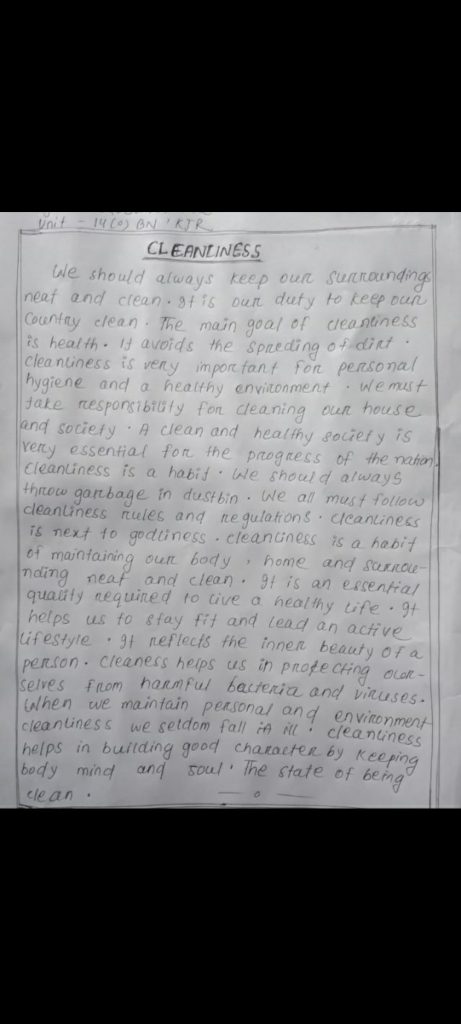 Unit - 14(O) BN, KJR
CLEANLINESS
We should always keep our surroundings
neat and clean. It is our duty to keep our
Country clean. The main goal of cleanliness
is health. It avoids the spreding of dirt.
cleanliness is very important for personal
hygiene and a healthy environment. We must
take responsibility for cleaning our house
and society. A clean and healthy society is
very essential for the progress of the nation.
Cleanliness is a habit. We should always
throw garbage in dustbin. We all must follow
cleanliness rules and regulations. Cleanliness
is next to godliness. cleanliness is a habit
of maintaining our body, home and surrou-
nding neat and clean. It is an essential
quality required to live a healthy life. It
helps us to stay fit and lead an active
lifestyle. It reflects the inner beauty of a
person. Cleaness helps us in protecting our-
selves from harmful bacteria and viruses.
When we maintain personal and environment
cleanliness we seldom fall ill. cleanliness
helps in building good character by keeping
body mind and soul. The state of being
clean.